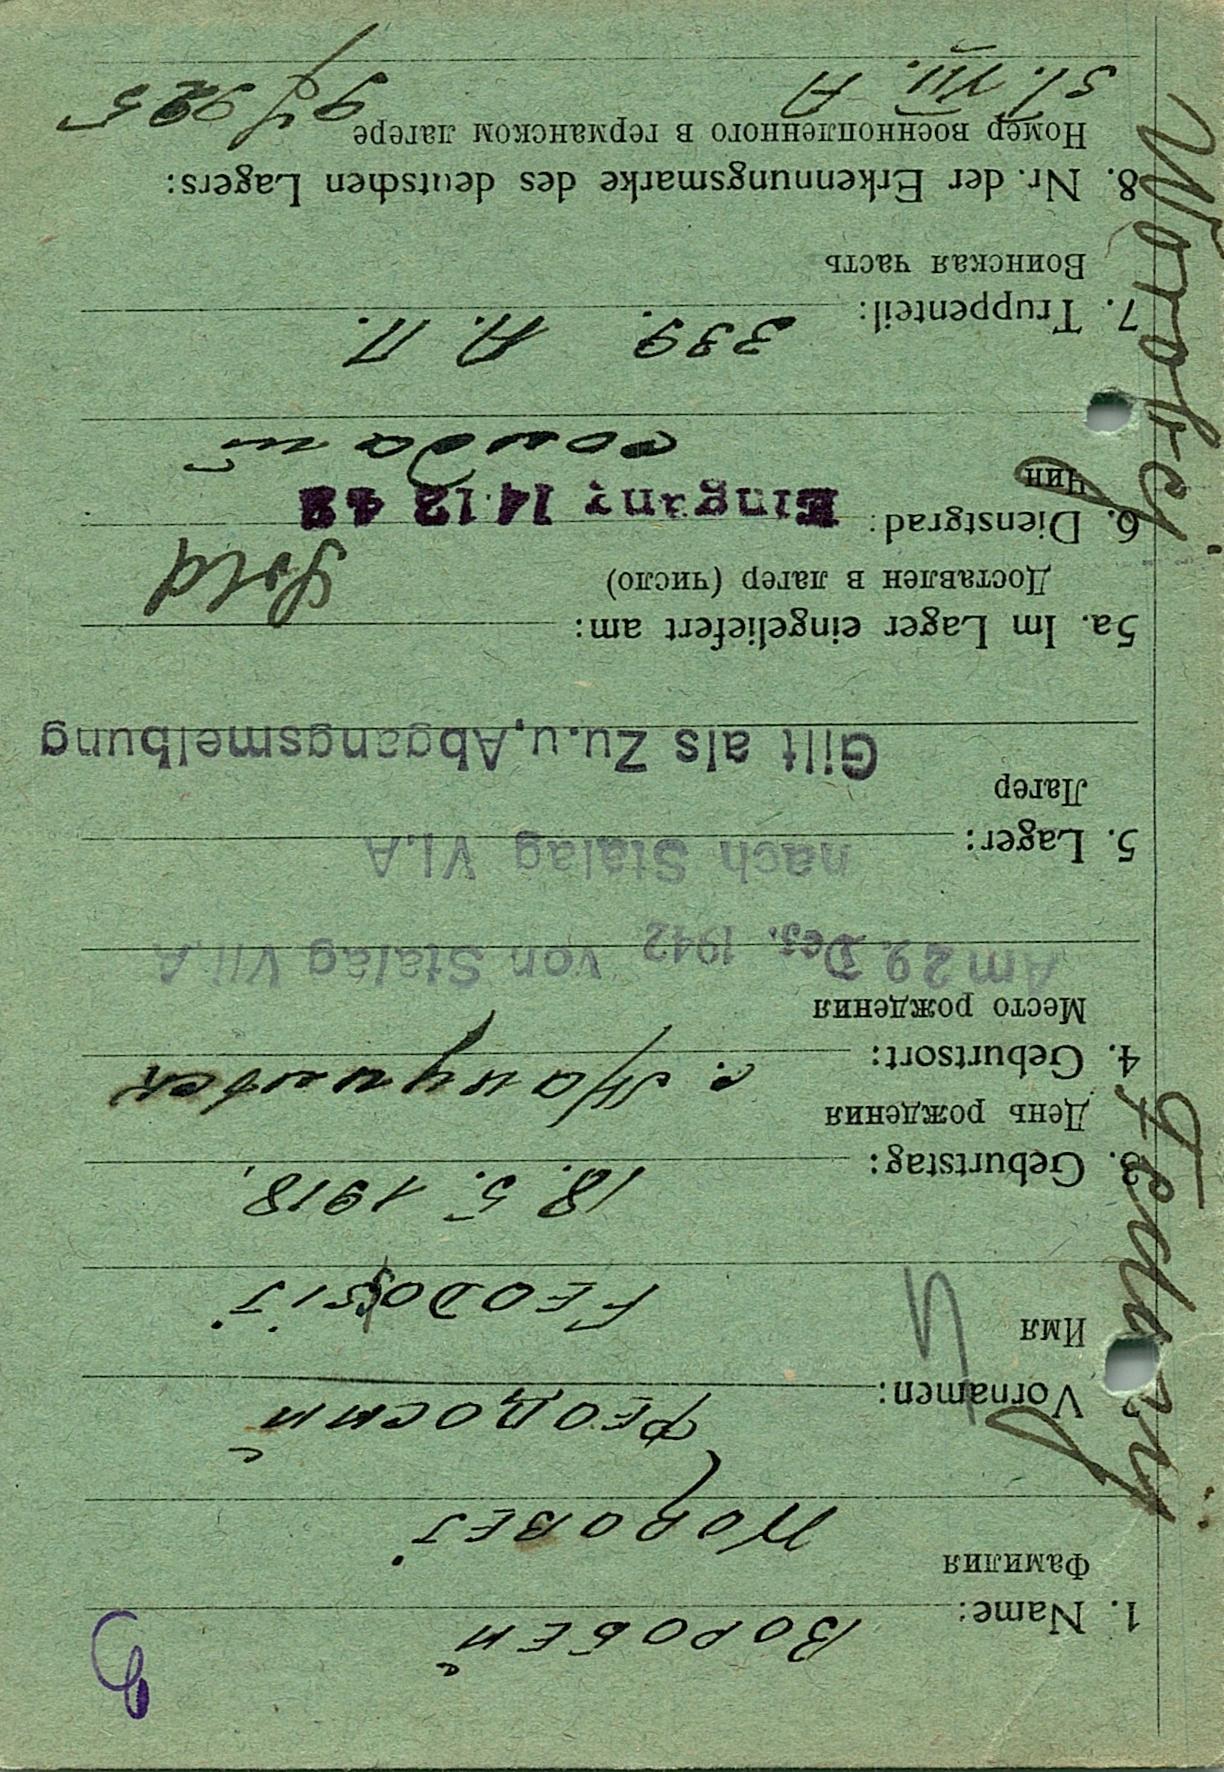 1. Name: ВОРОБЕЙ
Фамилия
WOROBEJ
ФЕОДОСИЙ
Vornamen:
Имя
FEODOSIJ
3. Geburtstag: 18. 5. 1918.
День рождения
4. Geburtsort: с.
Место рождения
Am 29. Dez. 1942 von Stalag VII.A
5. Lager: nach Stalag VI.A
Лагер
Gilt als Zu.u.Abgangsmelbung
5a. Im Lager eingeliefert am:
Доставлен в лагер (число)
Sold
6. Dienstgrad: Eingang 14 12 42
Чин
солдат
7. Truppenteil: 339. А. П.
Воинская часть
8. Nr. der Erkennungsmarke des deutschen Lagers:
Номер военнопленного в германском лагере
St. VII. A
Worobej Fedosij